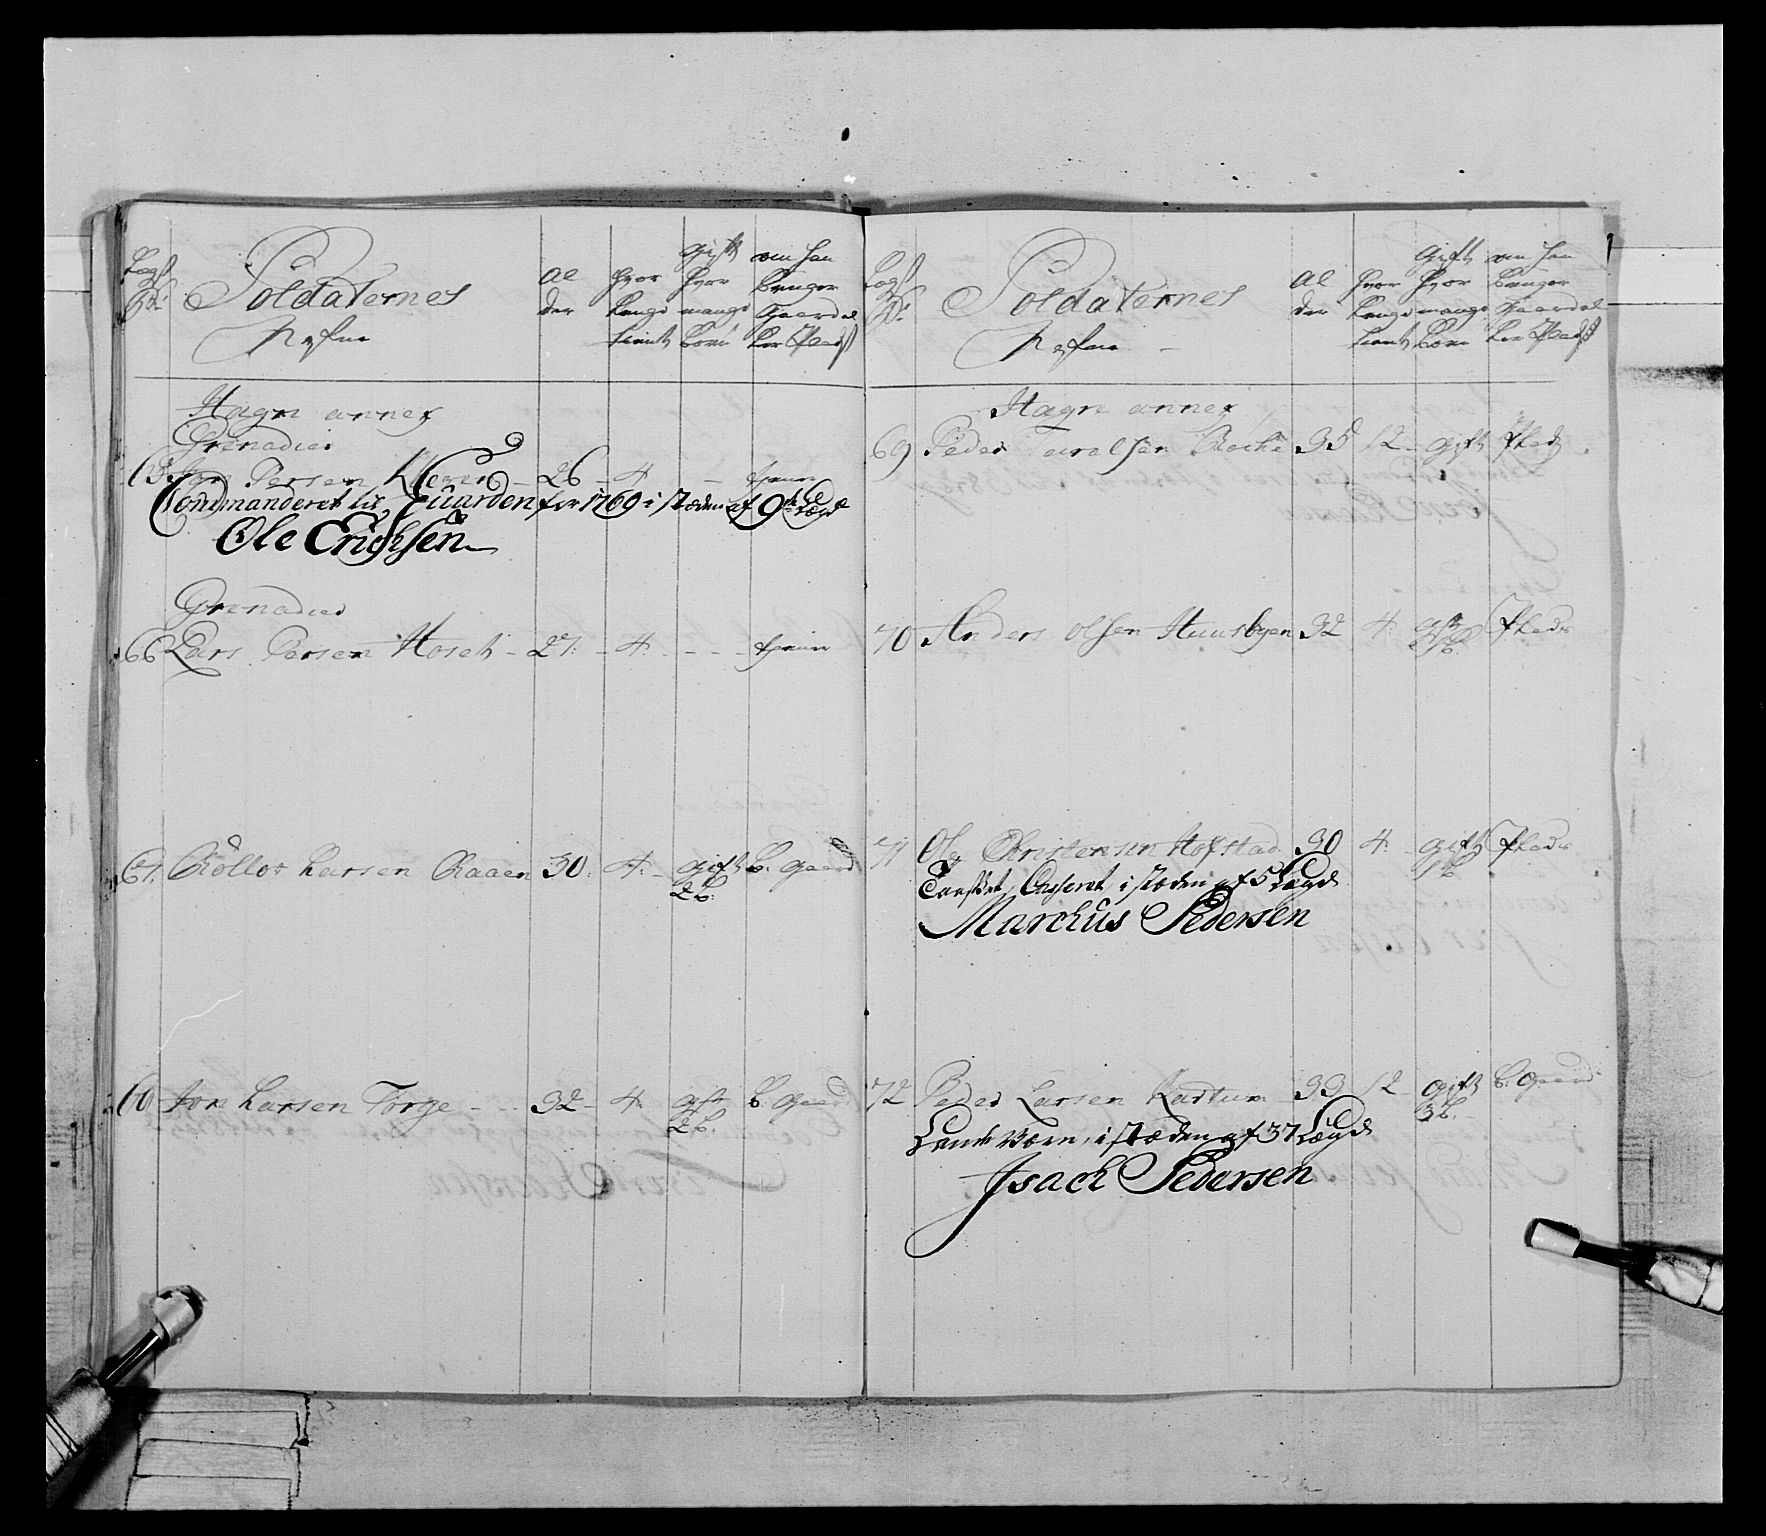 Lægd No:
Soldaternes Nafne
Al der
hvor lenge tient
gift hvor mange börn
om han bruger Gaard eller Plads
Hægn annex
Grenadier
65 Jon Persen Klever - 26 - 4 - - tiener
Commanderet til Guarden for 1769 i stæden af 9de Lægd
Ole Erichsen
Grenadier
66 Lars Persen Moset - 27: - 4: - - - tiener
67. Rollof Larsen Raaen 30: 4: - gift b. gaard
2 b:
60 Jon Larsen Torge - - 32 - 4: gift b. gaard
2 b.
Lægd No:
Soldaternes Nafne -
Al der
hvor lenge tient
gift hvor mange börn
om han bruger Gaard eller Plads
Hægn annex
69 Peder 35 12 - gift Plads
70 Anders Olsen Huusbyen 32 4: gift Plads
71 Ole Christensen Hofstad 30 4: gift Plads
1 b
Casseret, i stæden af 5 Lægd
Marchus Pedersen
72 Peder Larsen Rastum 33 12 - gift b: gaard
3 b.
Land Værn, i stæden af 37 Lægd
Isach Pedersen